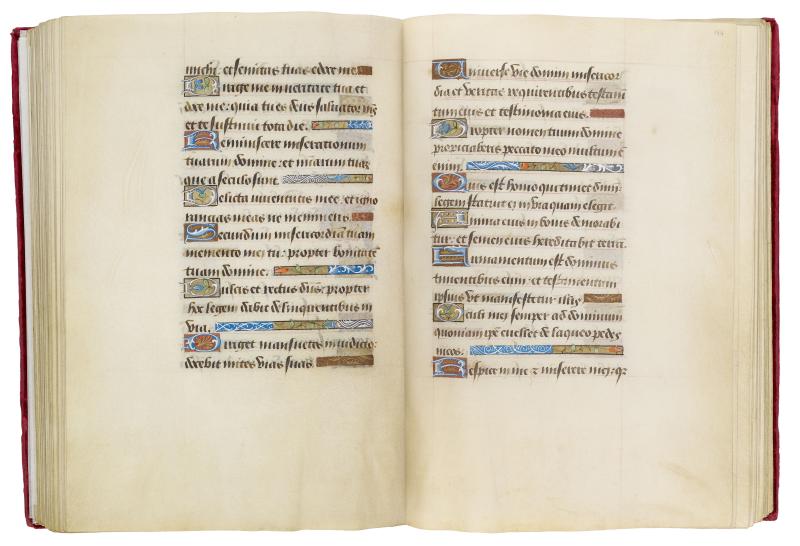 michi: et semitas tuas edoce me.
Dirige me in veritate tua et
doce me: quia tu es deus salvator ms
et te sustinui tota die.
Reminiscere miserationum
tuarum domine: et miarum tuar
que a seculo sunt.
Delicta iuventutis mee: et igno
rancias meas ne memineris.
Secundum misericordiam tuam
memento mei tu: propter bonitatē
tuam domine.
Dulcis et rectus dns: propter
hoc legem dabit delinquentibus in
via.
Diriget mansuetos in iudicio:
docebit mites vias suas.
Universe vie domini misericor
dia et veritas requirentibus testam
tum eius et testimonia eius.
Propter nomen tuum domine
propiciaberis peccato meo multum ē
enim.
Quis est homo qui timet dnm:
legem statuit ei in via quam elegit
Anima eius in bonis demorabi
tur: et semen eius hereditabit terrā.
Firmamentum est dominus
timentibus eum: et testamentum
ipsius vt manifestetur illis.
Oculi mei semper ad dominum
quoniam ipe evellet de laqueo pedes
meos.
Respice in me z miserere mei: qr